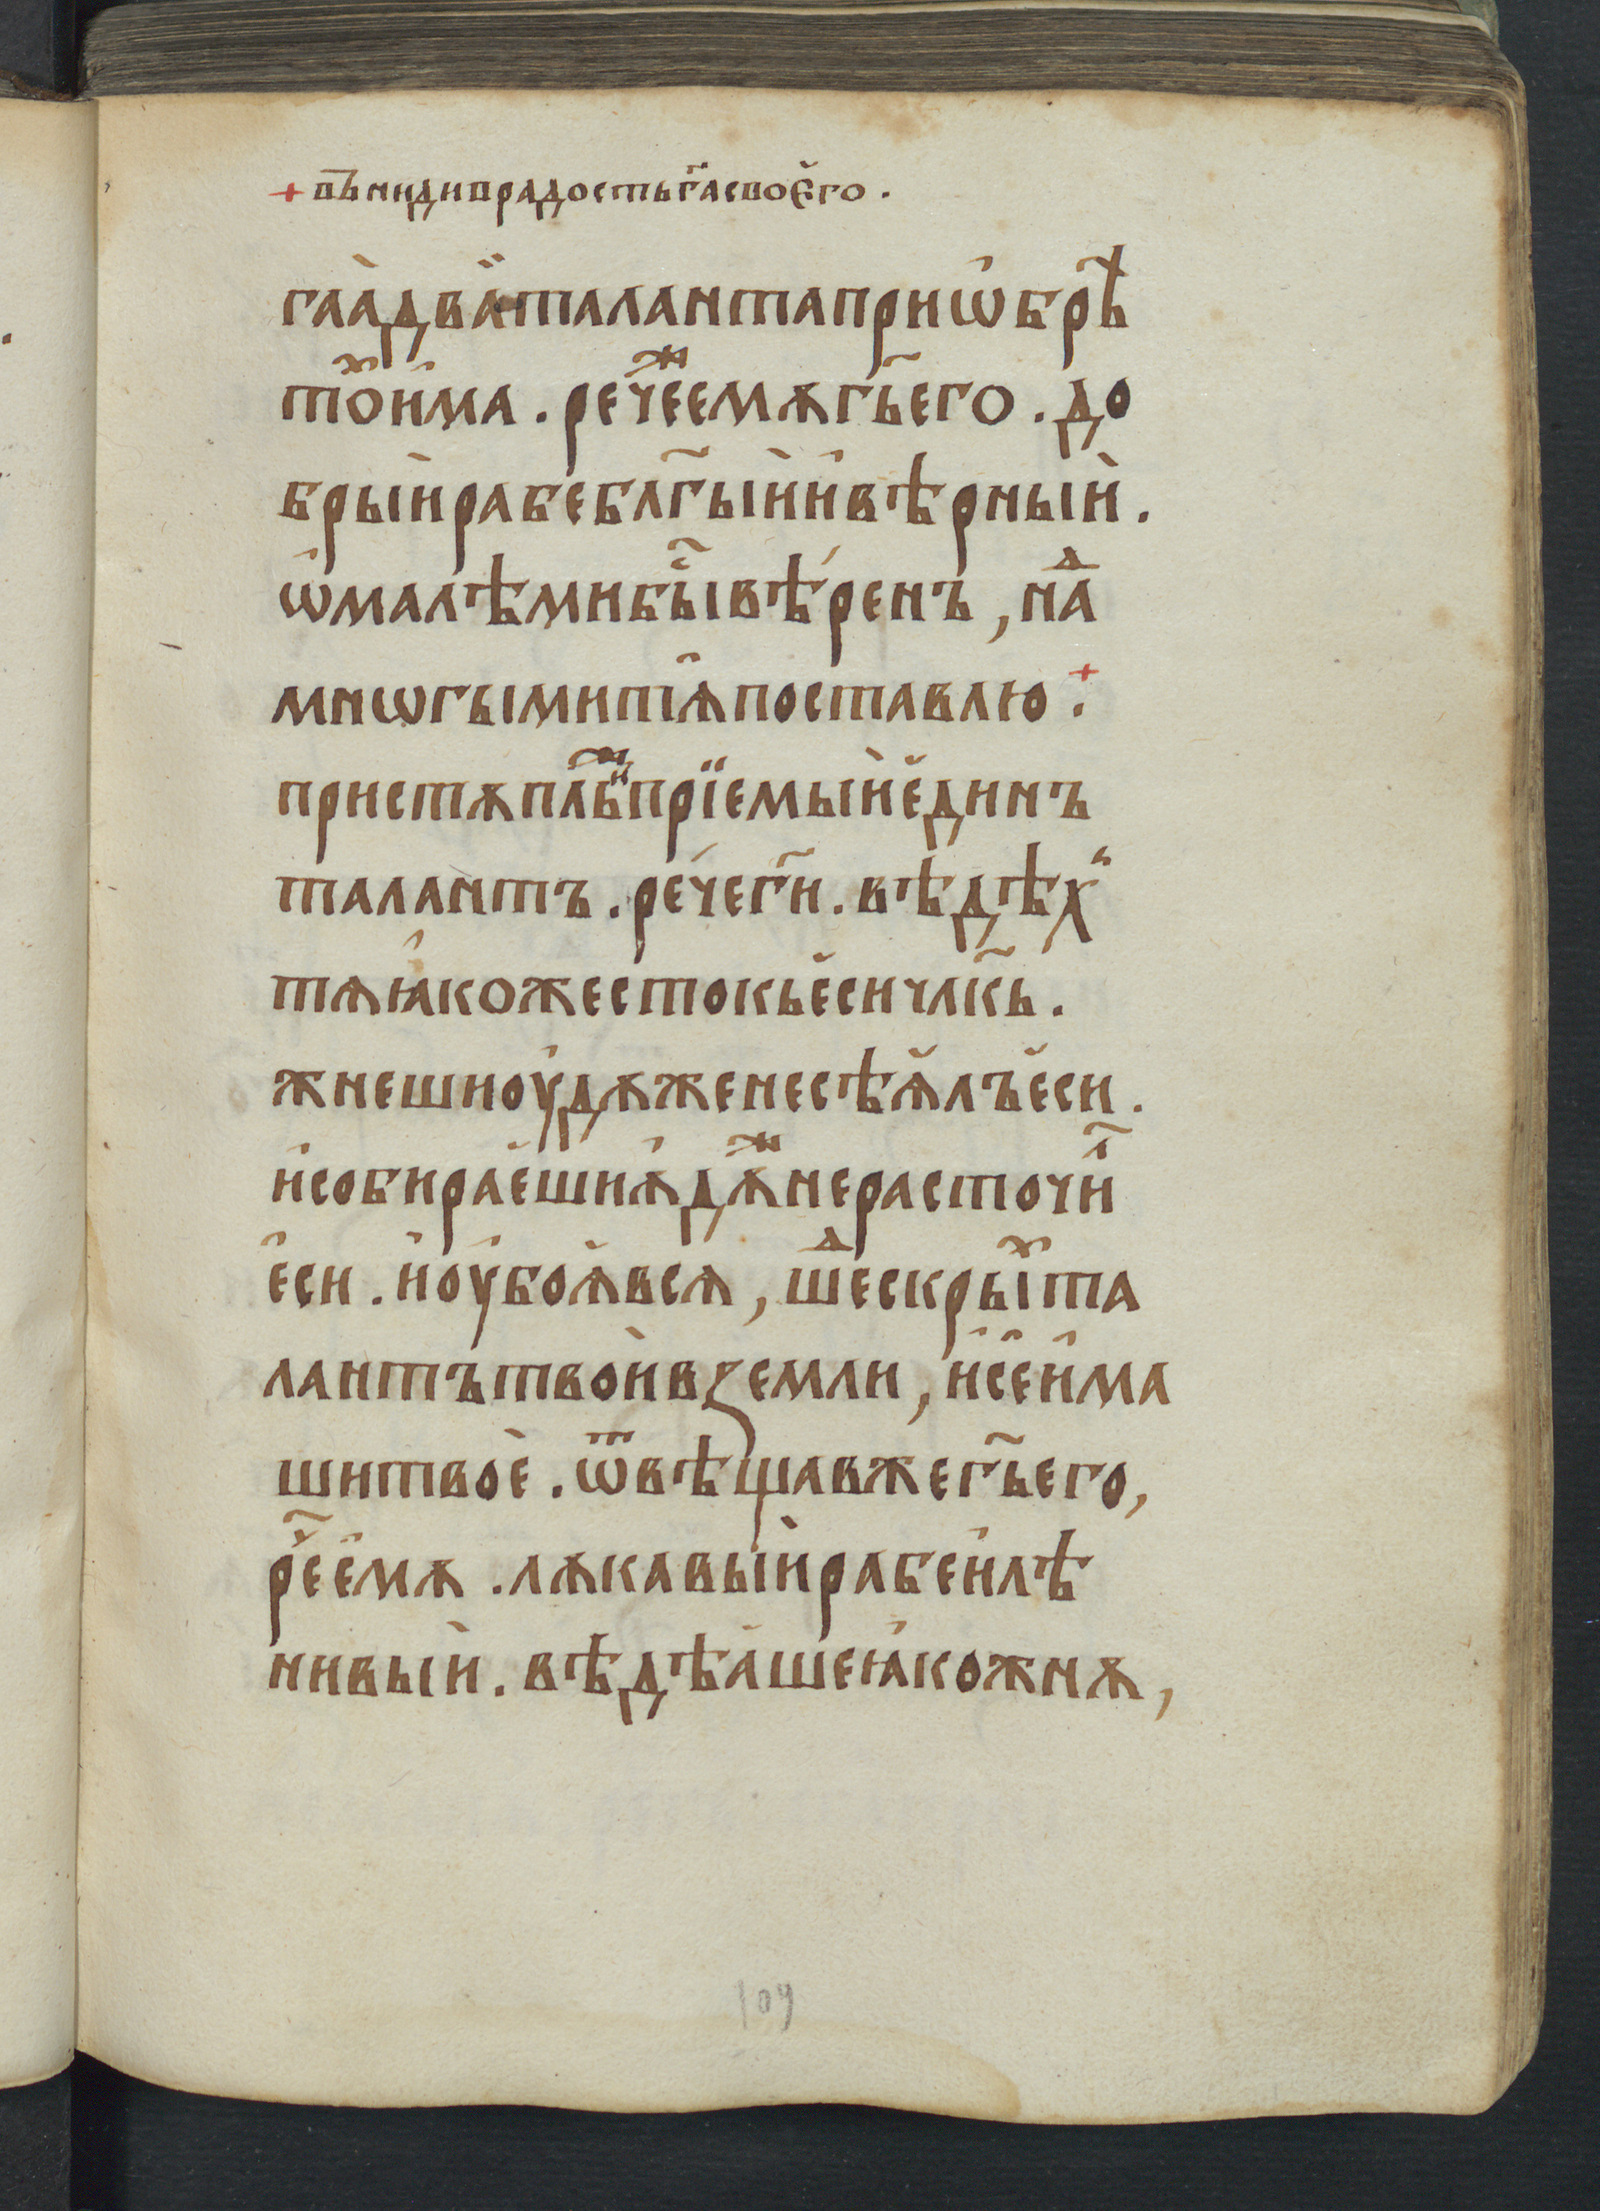 + вънидиврадостьг҃асвоѐго .
гаа̀два̏талантаприѡ҆брѣⷯ
тоⷯи҆ма . речеⷤемѫгь҃его . до
брыи҆рабебл҃гыи҆и҆вѣрныи҆ .
ѡ҆малѣмибыⷭ҇вѣ́ренъ , наⷣ
мнѡгымитѧ̑поставлю . +
пристѫпльⷤипрїемыи҆е҆динъ
талантъ . ре́чег҃и . вѣдѣх̾
тѧꙗ҆кожестокье҆сичл҃кь .
жнешиоу҆дѫженесѣѧ҆лъе҆си .
и҆собирае҆шиѧ҆дѫⷤнерасточиⷧ
е҆си . и҆оу҆боѧ҆всѧ , шеⷣскрыⷯта
лантътвои҆вꙁемли , и҆се҆и҆ма
шитвоѐ . ѿвѣщавжегь҃его ,
реⷱ҇е҆мѫ . лѫкавыи҆рабеи҆лѣ
нивыи҆ . вѣдѣа҆шеꙗ҆кожнѫ ,
109